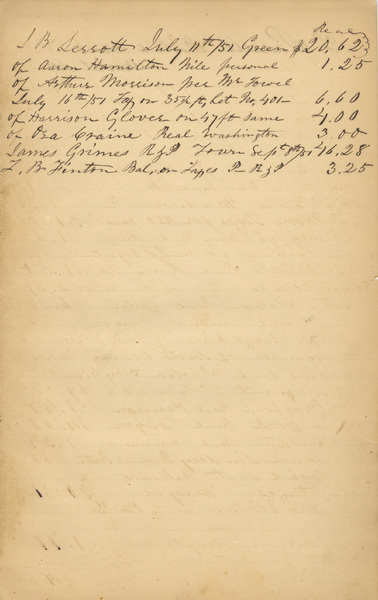 Real
J B Lerrott July 11th/51 Green $20,62½
of Aaron Hamilton Nile personal 1.25
of Arthur Morrison per Mr Fowel
July 16th/51 Tax on 35 ft, Lot No. 401 6,60
of Harrison Glover on 47 ft same 4,00
of Ora Craine Real Washington 3,00
James Grimes R&P Town Sept 8th/51 16,28
F, B Finton Bal, on Taxes P R&P 3.25